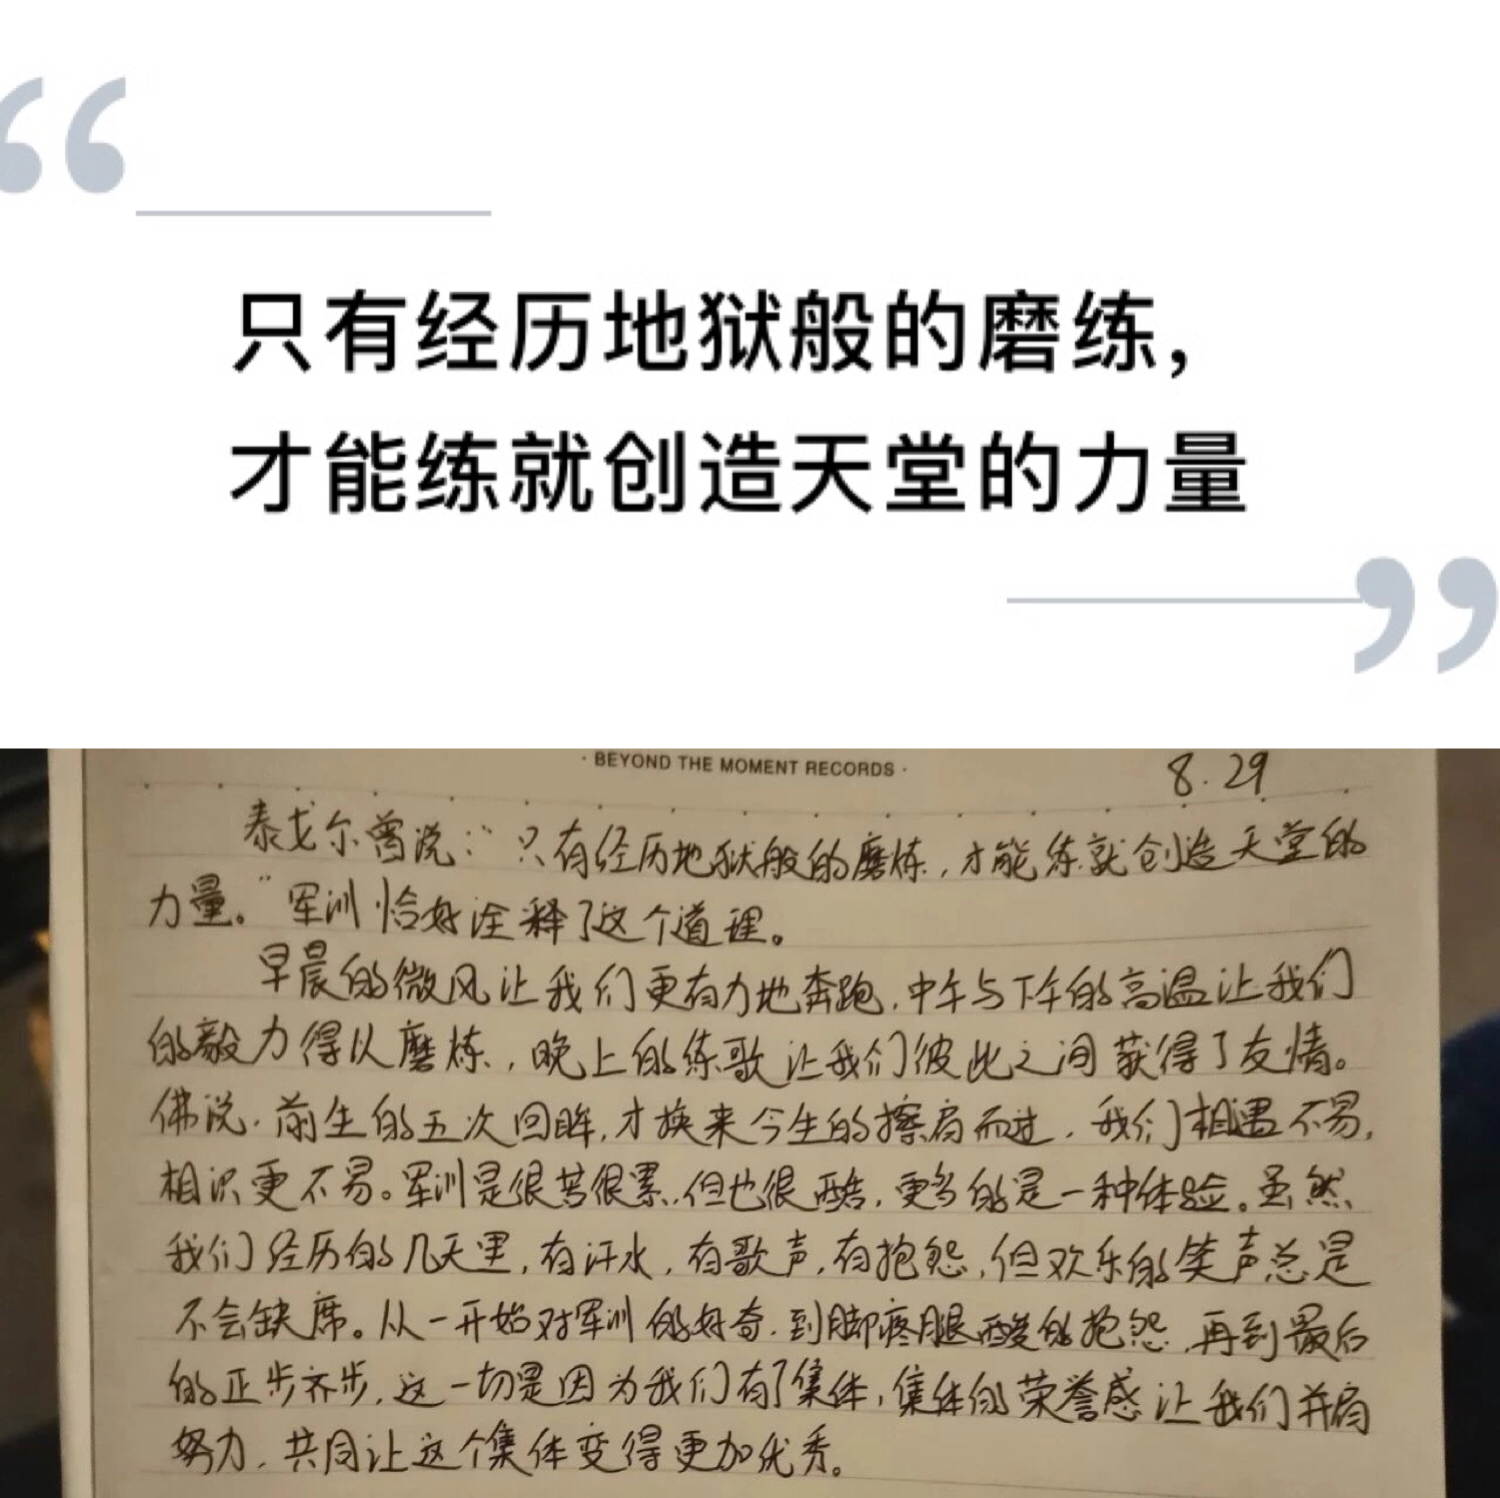 只有经历地狱般的磨练,
才能练就创造天堂的力量
· BEYOND THE MOMENT RECORDS ·
8.29
泰戈尔曾说：“只有经历地狱般的磨炼，才能练就创造天堂的
力量。”军训恰好诠释了这个道理。
早晨的微风让我们更有力地奔跑，中午与下午的高温让我们
的毅力得以磨炼，晚上的练歌让我们彼此之间获得了友情。
佛说，前生的五次回眸，才换来今生的擦肩而过，我们相遇不易，
相识更不易。军训是很苦很累，但也很酷，更多的是一种体验。虽然
我们经历的几天里，有汗水，有歌声，有抱怨，但欢乐的笑声总是
不会缺席。从一开始对军训的好奇，到脚疼腿酸的抱怨，再到最后
的正步齐步，这一切是因为我们有了集体，集体的荣誉感让我们并肩
努力，共同让这个集体变得更加优秀。